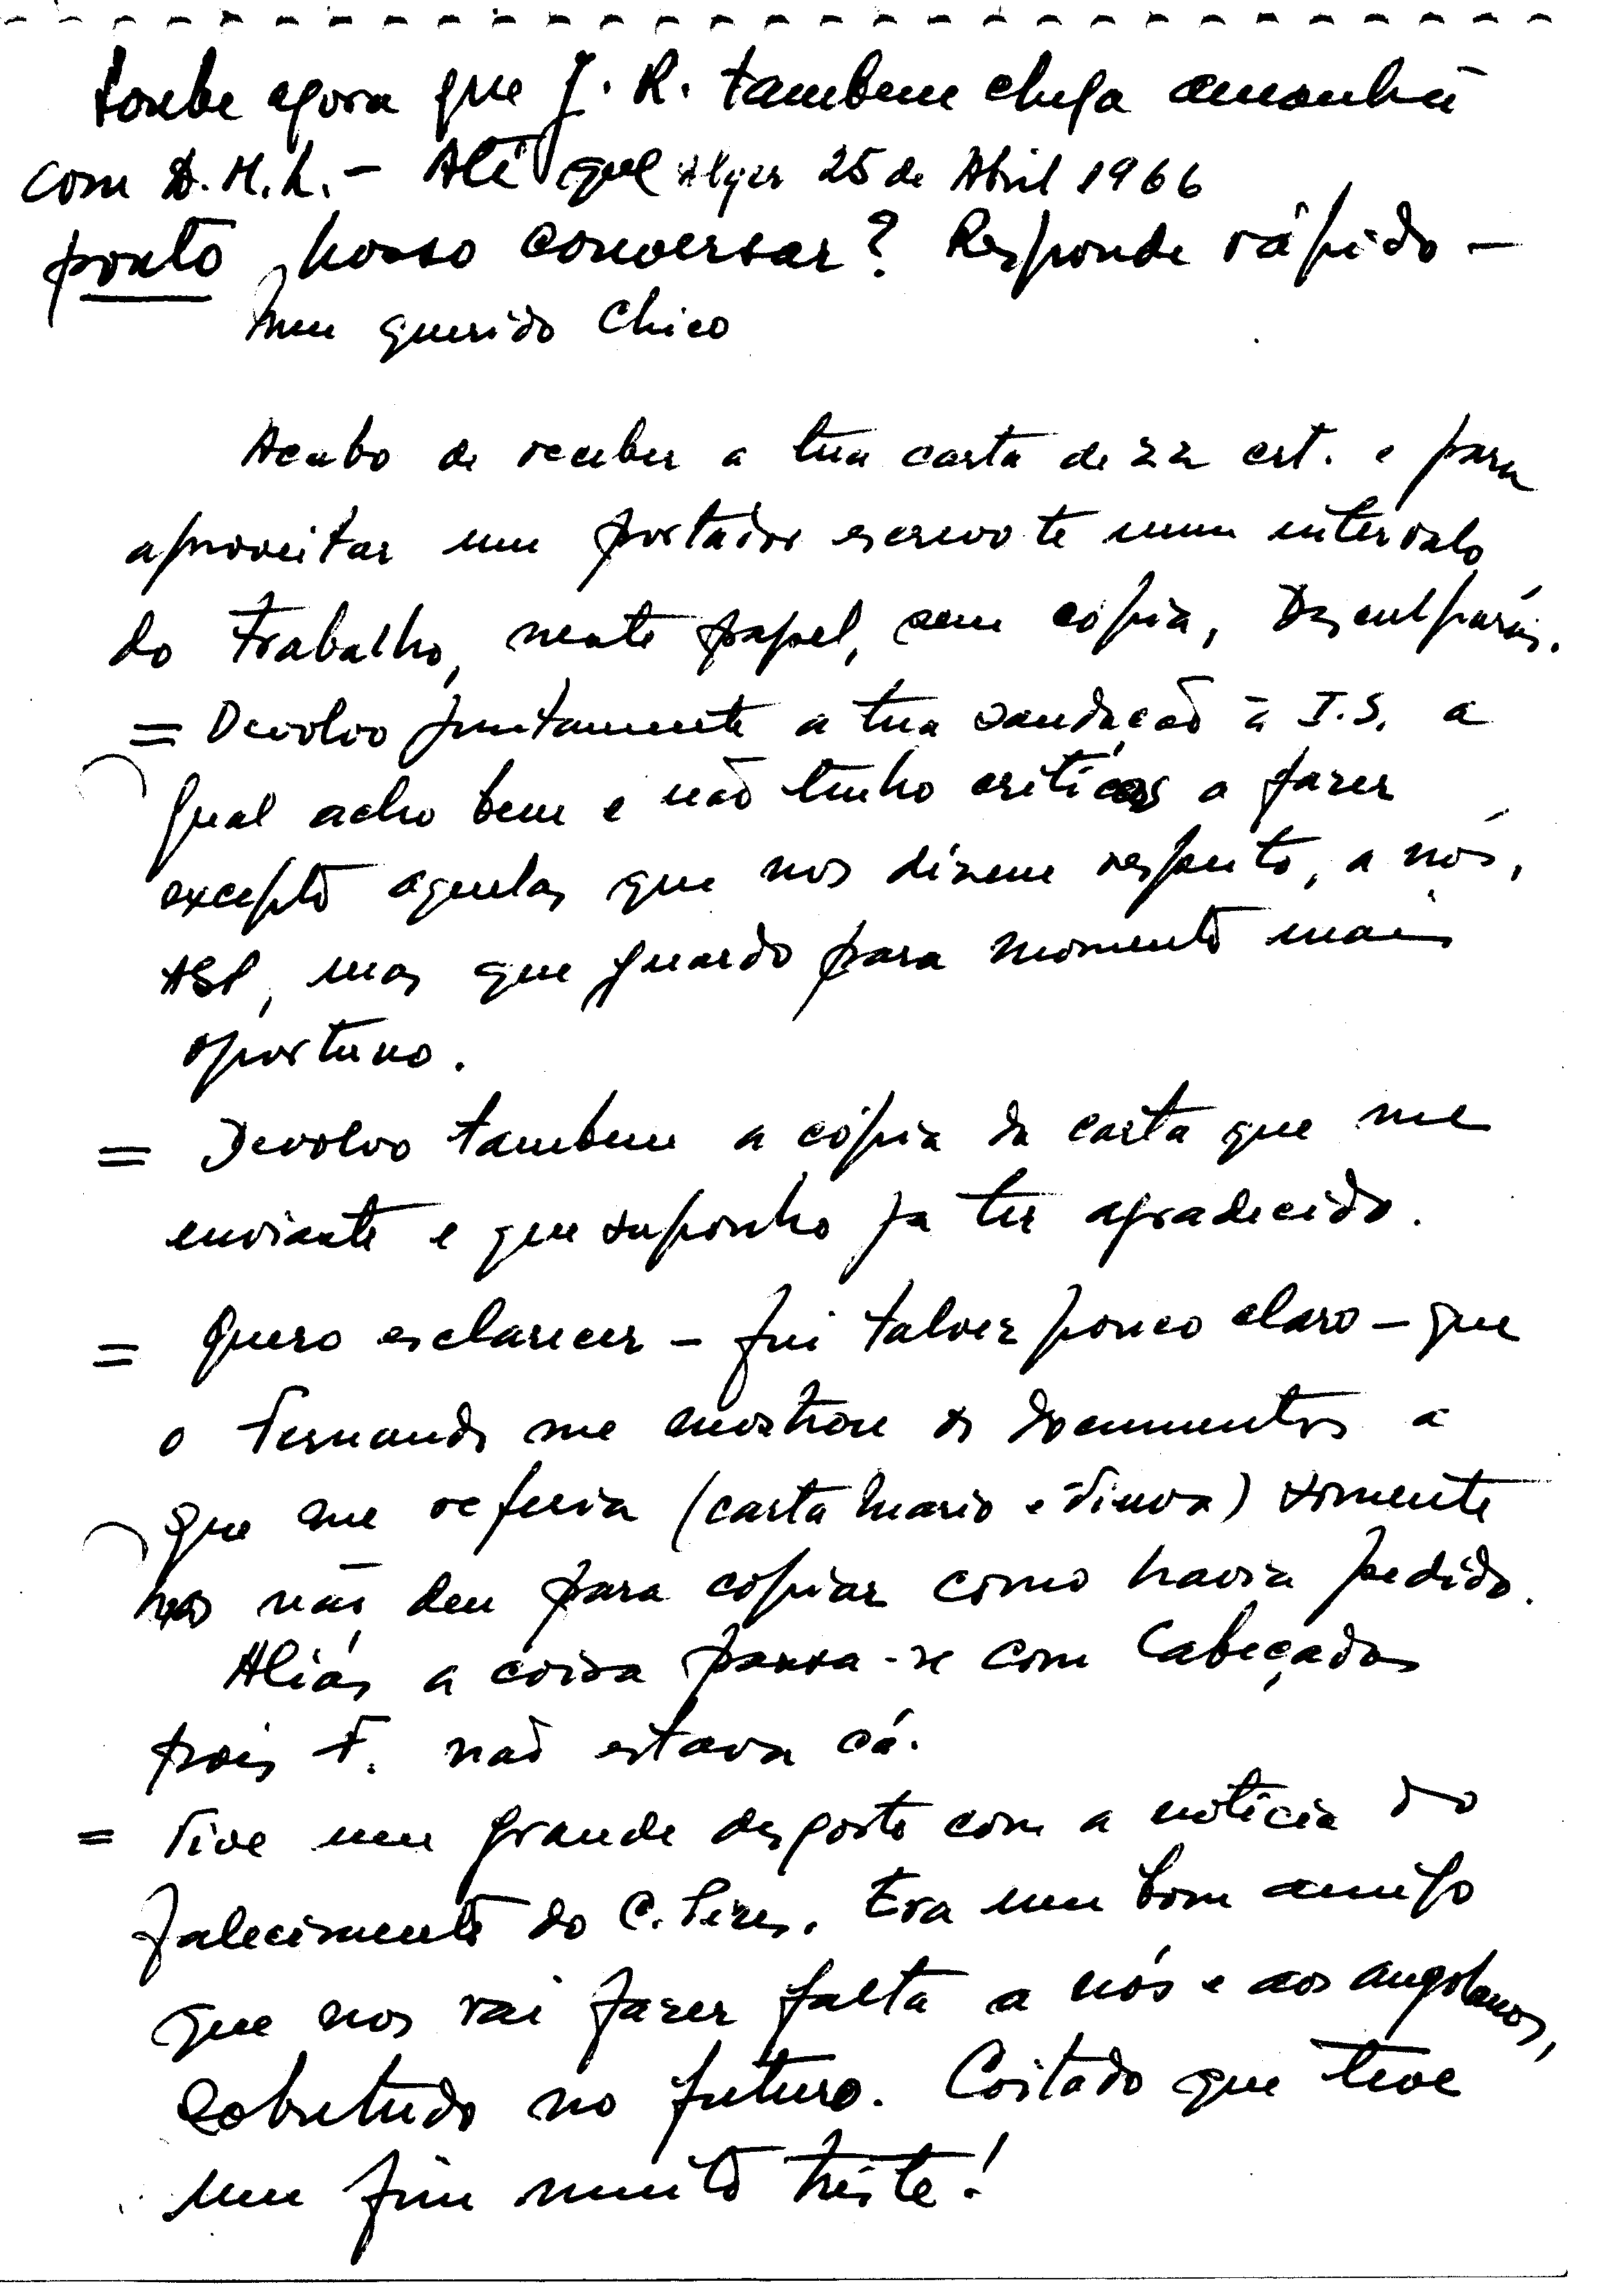 Soube agora que J. R. tambem chega amanhã
com D. M. L. – Até que Alger 25 de Abril 1966
ponto posso conversar? Responde rápido –
Meu querido Chico
Acabo de receber a tua carta de 22 crt. e para
aproveitar um portador escrevo te num intervalo
do trabalho, neste papel, sem cópia, Desculparás.
= Devolvo juntamente a tua saudação à I.S. a
qual acho bem e não tenho críticas a fazer
excepto aquelas que nos dizem respeito, a nós,
ASP, mas que guardo para momento mais
oportuno.
= Devolvo tambem a cópia da carta que me
enviaste e que suponho ja ter agradecido.
= Quero esclarecer – fui talvez pouco claro – que
o Fernando me mostrou os documentos a
que me referia (carta Mario e Tinoca) somente
nos não deu para copiar como havia pedido.
Aliás a coisa passa-se com Cabeçadas
pois F. não estava cá.
= Tive um grande desgosto com a notícia do
falecimento do C. Pires. Era um bom amigo
que nos vai fazer falta a nós e aos angolanos,
sobretudo no futuro. Coitado que teve
um fim muito triste!